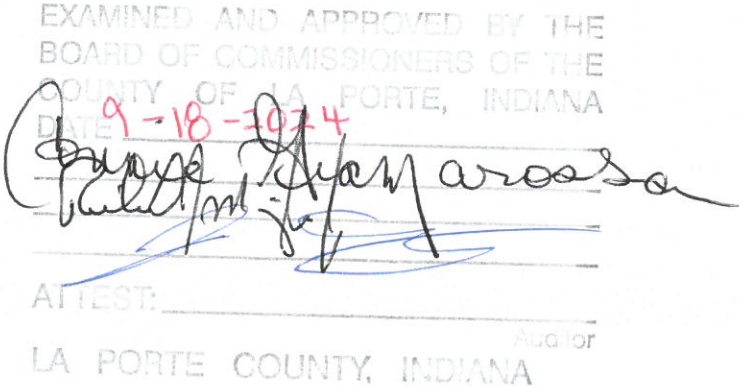 EXAMINED AND APPROVED BY THE
BOARD OF COMMISSIONERS OF THE
COUNTY OF LA PORTE, INDIANA
DATE 9-18-2024
ATTEST:
Auditor
LA PORTE COUNTY, INDIANA